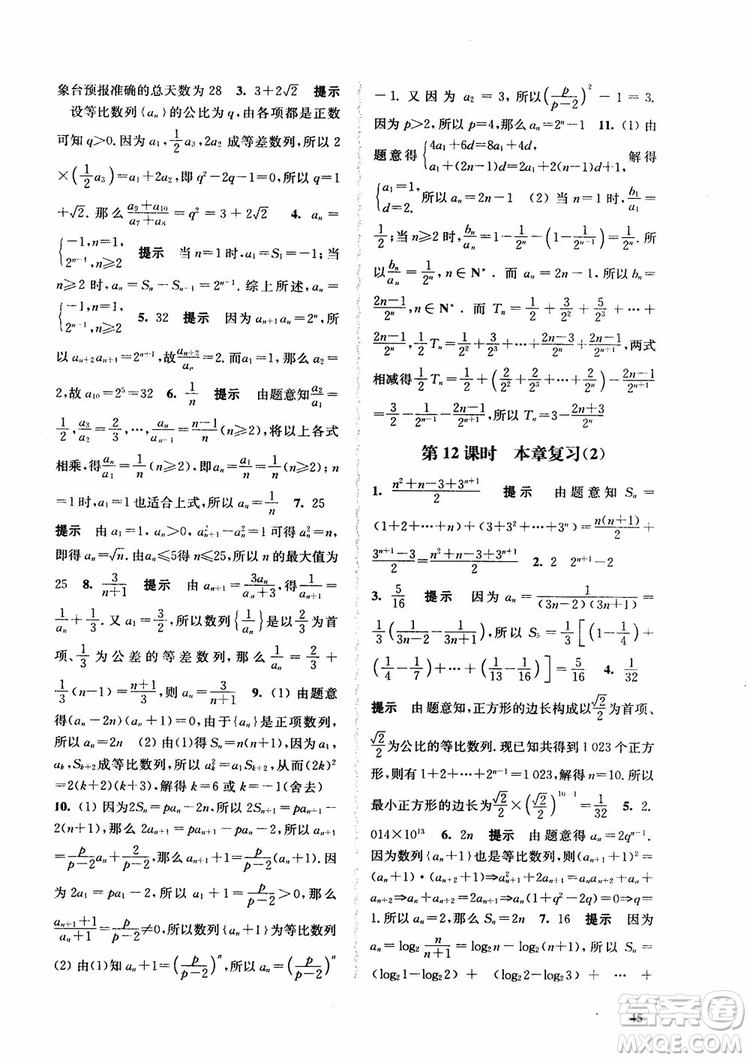 象台预报准确的总天数为 28　3. 3+2√2　提示
设等比数列{aₙ}的公比为 q,由各项都是正数
可知 q>0. 因为 a₁, 1/2 a₃, 2a₂ 成等差数列,所以 2
×(1/2 a₃)=a₁+2a₂,即 q²-2q-1=0,所以 q=1
+√2. 那么 (a₉+a₁₀)/(a₇+a₈)=q²=3+2√2　4. aₙ=
{-1,n=1, 2ⁿ⁻¹,n≥2　提示　当 n=1 时,a₁=S₁=-1;当
n≥2 时,aₙ=Sₙ-Sₙ₋₁=2ⁿ⁻¹. 综上所述,aₙ=
{-1,n=1, 2ⁿ⁻¹,n≥2　5. 32　提示　因为 aₙ₊₁aₙ=2ⁿ,所
以 aₙ₊₂aₙ₊₁=2ⁿ⁺¹,故 aₙ₊₂/aₙ=2. 又 a₁=1,所以 a₂=
2,故 a₁₀=2⁵=32　6. 1/n　提示　由题意知 a₂/a₁=
1/2, a₃/a₂=2/3,…, aₙ/aₙ₋₁=(n-1)/n (n≥2),将以上各式
相乘,得 aₙ=1/n (n≥2). 又因为 a₁=1,所以 aₙ=
1/n. n=1 也适合上式,所以 aₙ=1/n　7. 25
提示　由 a₁=1,aₙ>0,aₙ₊₁²-aₙ²=1 可得 aₙ²=n,
即得 aₙ=√n. 由 aₙ≤5 得 n≤25,所以 n 的最大值为
25　8. 3/(n+1)　提示　由 aₙ₊₁=3aₙ/(aₙ+3),得 1/aₙ₊₁=
1/aₙ+1/3. 又 a₁=3/2,所以数列{1/aₙ}是以 2/3 为首
项、1/3 为公差的等差数列,那么 1/aₙ=2/3+
1/3(n-1)=(n+1)/3,则 aₙ=3/(n+1)　9. (1) 由题意
得(aₙ-2n)(aₙ+2)=0,由于{aₙ}是正项数列,
所以 aₙ=2n　(2) 由(1)知,Sₙ=n(n+1). 因为 a₁,
aₖ,Sₖ₊₂成等比数列,所以 aₖ²=a₁Sₖ₊₂,从而(2k)²=
2(k+2)(k+3),解得 k=6 或 k=-1(舍去)
10. (1) 因为2Sₙ=paₙ-2n,所以2Sₙ₊₁=paₙ₊₁-
2(n+1). 那么 2aₙ₊₁=paₙ₊₁-paₙ-2,所以 aₙ₊₁=
p/(p-2) aₙ+2/(p-2),所以 aₙ₊₁+1=p/(p-2)(aₙ+1). 因
为 2a₁=pa₁-2,所以 a₁=p/(p-2)>0,所以
(aₙ₊₁+1)/(aₙ+1)=p/(p-2)≠0,所以数列{aₙ+1}为等比数列
(2) 由(1)知 aₙ+1=(p/(p-2))ⁿ,所以 aₙ=(p/(p-2))ⁿ
-1. 又因为 a₂=3,所以(p/(p-2))²-1=3.
因为 p>2,所以 p=4,那么 aₙ=2ⁿ-1　11. (1) 由
题意得{4a₁+6d=8a₁+4d, a₁+(2n-1)d=2a₁+2(n-1)d+1, 解得
{a₁=1, d=2. 所以 aₙ=2n-1　(2) 当 n=1 时,b₁/a₁=
1/2;当 n≥2 时,bₙ/aₙ=1-1/2ⁿ-(1-1/2ⁿ⁻¹)=1/2ⁿ.
所以 bₙ/aₙ=1/2ⁿ,n∈N*. 所以 bₙ=
(2n-1)/2ⁿ,n∈N*. 所以 Tₙ=1/2+3/2²+5/2³+…+
(2n-1)/2ⁿ,1/2 Tₙ=1/2²+3/2³+…+(2n-3)/2ⁿ+(2n-1)/2ⁿ⁺¹,两式
相减得 1/2 Tₙ=1/2+2/2²+2/2³+…+2/2ⁿ-(2n-1)/2ⁿ⁺¹=
3/2-1/2ⁿ⁻¹-(2n-1)/2ⁿ⁺¹,所以 Tₙ=3-(2n+3)/2ⁿ
第 12 课时　本章复习(2)
1. (n²+n-3+3ⁿ⁺¹)/2　提示　由题意知 Sₙ=
(1+2+…+n)+(3+3²+…+3ⁿ)=n(n+1)/2+
(3ⁿ⁺¹-3)/2=(n²+n-3+3ⁿ⁺¹)/2　2. 2　2ⁿ⁺¹-2
3. 5/16　提示　因为 aₙ=1/((3n-2)(3n+1))=
1/3(1/(3n-2)-1/(3n+1)),所以 S₅=1/3[(1-1/4)+
(1/4-1/7)+…+(1/13-1/16)]=5/16　4. 1/32
提示　由题意知,正方形的边长构成以 √2/2 为首项、
√2/2 为公比的等比数列. 现已知共得到 1 023 个正方
形,则有 1+2+…+2ⁿ⁻¹=1 023,所以 n=10,所以
最小正方形的边长为 √2/2×(√2/2)¹⁰⁻¹=1/32　5. 2.
014×10¹³　6. 2n　提示　由题意知 aₙ=2qⁿ⁻¹.
因为数列{aₙ+1}也是等比数列,所以(aₙ₊₁+1)²=
(aₙ+1)(aₙ₊₂+1)⇒aₙ₊₁²+2aₙ₊₁=aₙaₙ₊₂+aₙ+
aₙ₊₂⇒aₙ+aₙ₊₂=2aₙ₊₁⇒aₙ(1+q²-2q)=0⇒q=
1. 所以 aₙ=2,所以 Sₙ=2n　7. 16　提示　因为
aₙ=log₂ n/(n+1)=log₂n-log₂(n+1),所以 Sₙ=
(log₂1-log₂2)+(log₂2-log₂3)+…+
45
答案圈
MXQE.COM